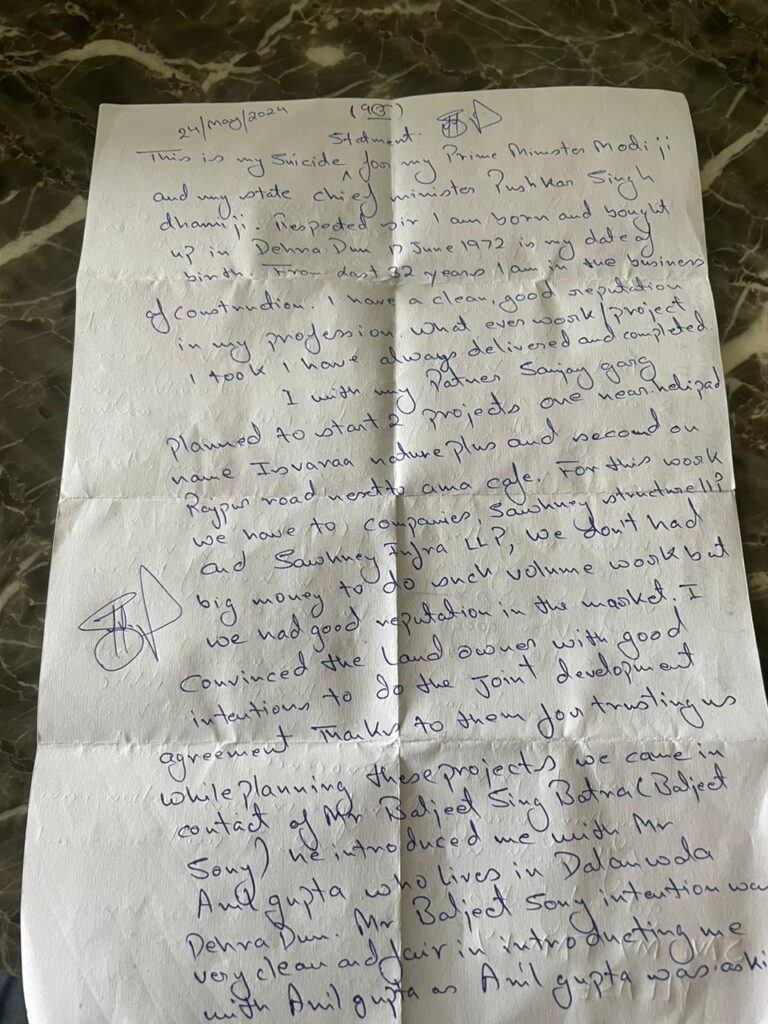 24/May/2024 (ੴ)
Statment.
This is my Suicide ^ for my Prime Minister Modi ji
and my state chief minister Pushkar Singh
dhami ji. Respected sir I am born and bought
up in Dehra Dun 17 June 1972 is my date of
birth. From last 32 years I am in the business
of construction. I have a clean, good reputation
in my profession. what ever work/project
I took I have always delivered and completed.
I with my Patner Sanjay garg
planned to start 2 projects one near helipad
name Isvaraa nature plus and second on
Raypur road nest to ama cafe. For this work
we have to companies, Sawhney structure
and Sawhney Infra LLP, we don't had
big money to do such volume work but
we had good reputation in the market. I
Convinced the Land owner with good
intentions to do the Joint development
agreement Thanks to them for trusting us
while planning these projects we came in
contact of Mr Baljeet Sing Batra (Baljeet
Sony) he introduced me with Mr
Anil gupta who lives in Dalanwoda
Dehra Dun. Mr Baljeet Sony intention was
very clean and fair in introducting me
with Anil gupta as Anil gupta was aski